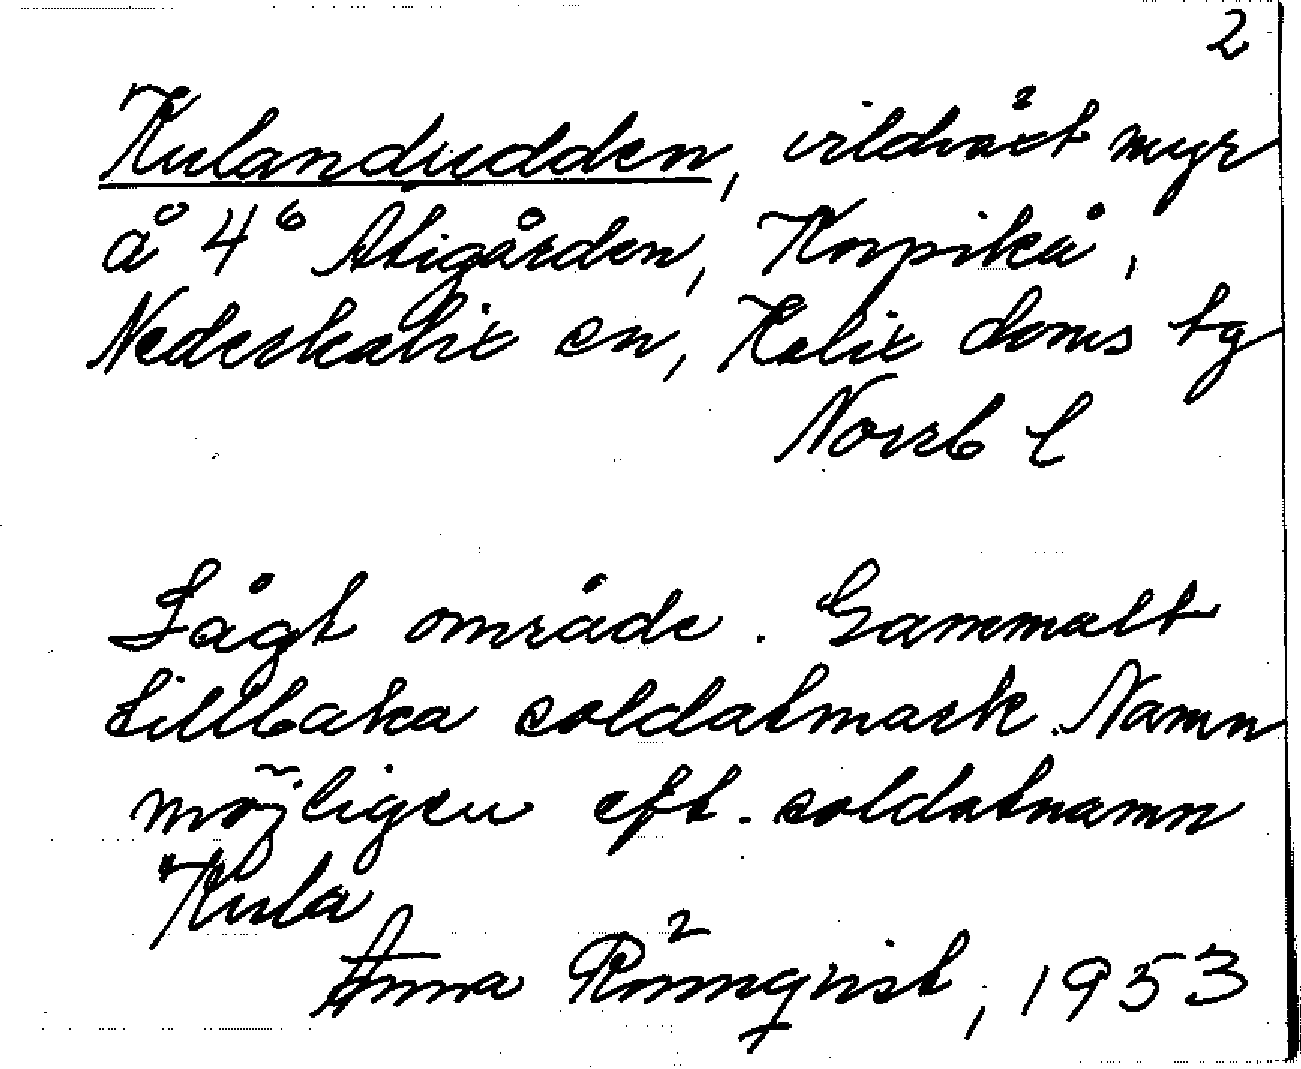 2
Kulandudden, vildväxt myr
å 4⁶ Stigården, Korpikå,
Nederkalix sn, Kalix doms tg
Norrb l
Lågt område. Gammalt
tillbaka soldatmark. Namn
möjligen eft. soldatnamn
Kula
Anna Rönnqvist, 1953